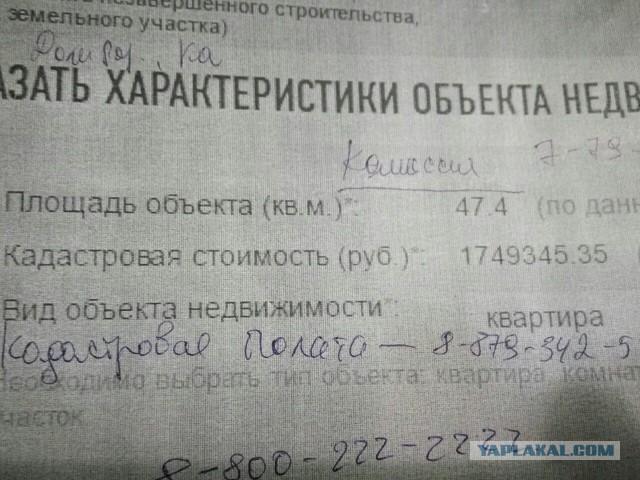 незавершенного строительства,
земельного участка)
АЗАТЬ ХАРАКТЕРИСТИКИ ОБЪЕКТА НЕДВ
Комиссия 7-79-
Площадь объекта (кв.м.)*: 47.4 (по данн
Кадастровая стоимость (руб.)*: 1749345.35 (
Вид объекта недвижимости*: квартира
Кадастровая Полата — 8-879-342-5
Необходимо выбрать тип объекта: квартира, комнат
часток
8-800-222-2222
YAPLAKAL.COM